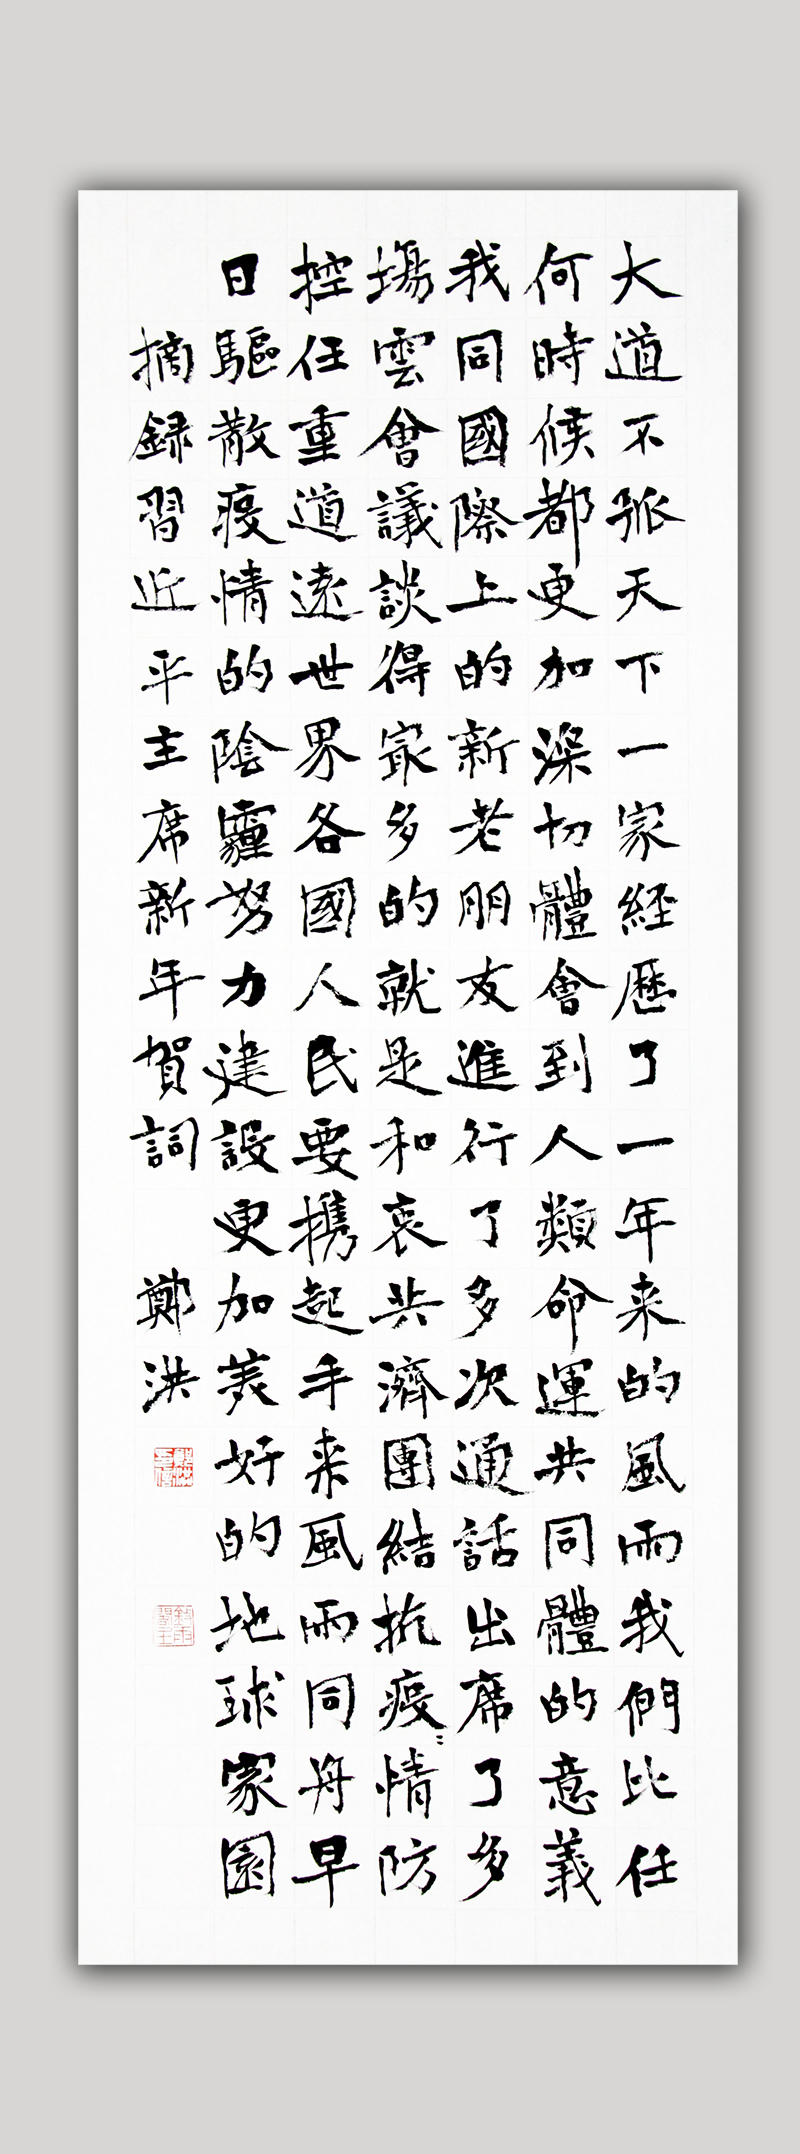 大道不孤天下一家經歷了一年来的風雨我們比任
何時候都更加深切體會到人類命運共同體的意義
我同國際上的新老朋友進行了多次通話出席了多
塲雲會議談得最多的就是和衷共濟團結抗疫〻情防
控任重道遠世界各國人民要携起手来風雨同舟早
日驅散疫情的陰霾努力建設更加美好的地球家園
摘録習近平主席新年賀詞 鄭洪